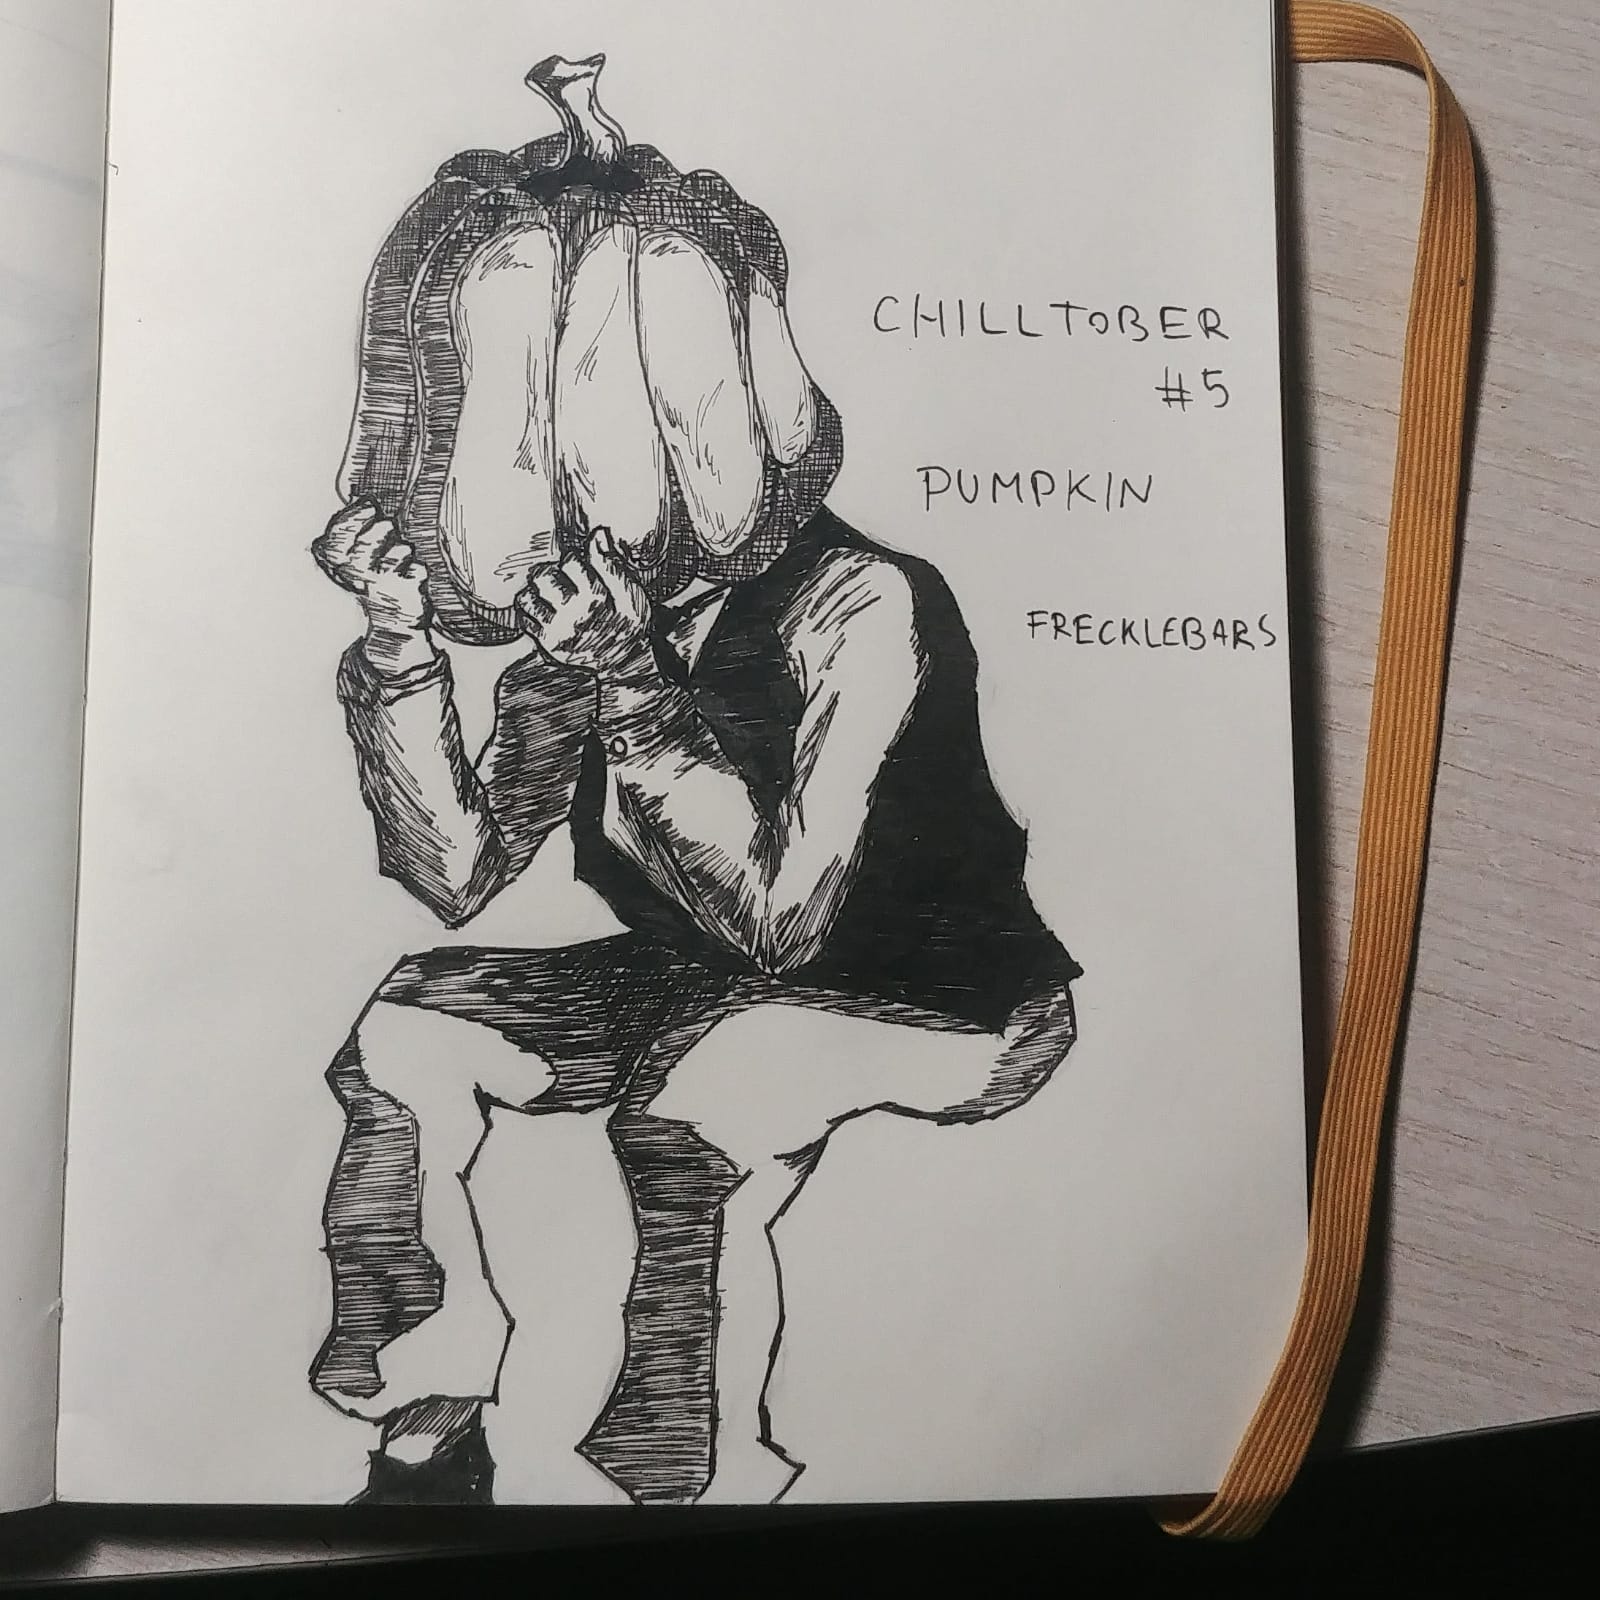 CHILLTOBER
#5
PUMPKIN
FRECKLEBARS